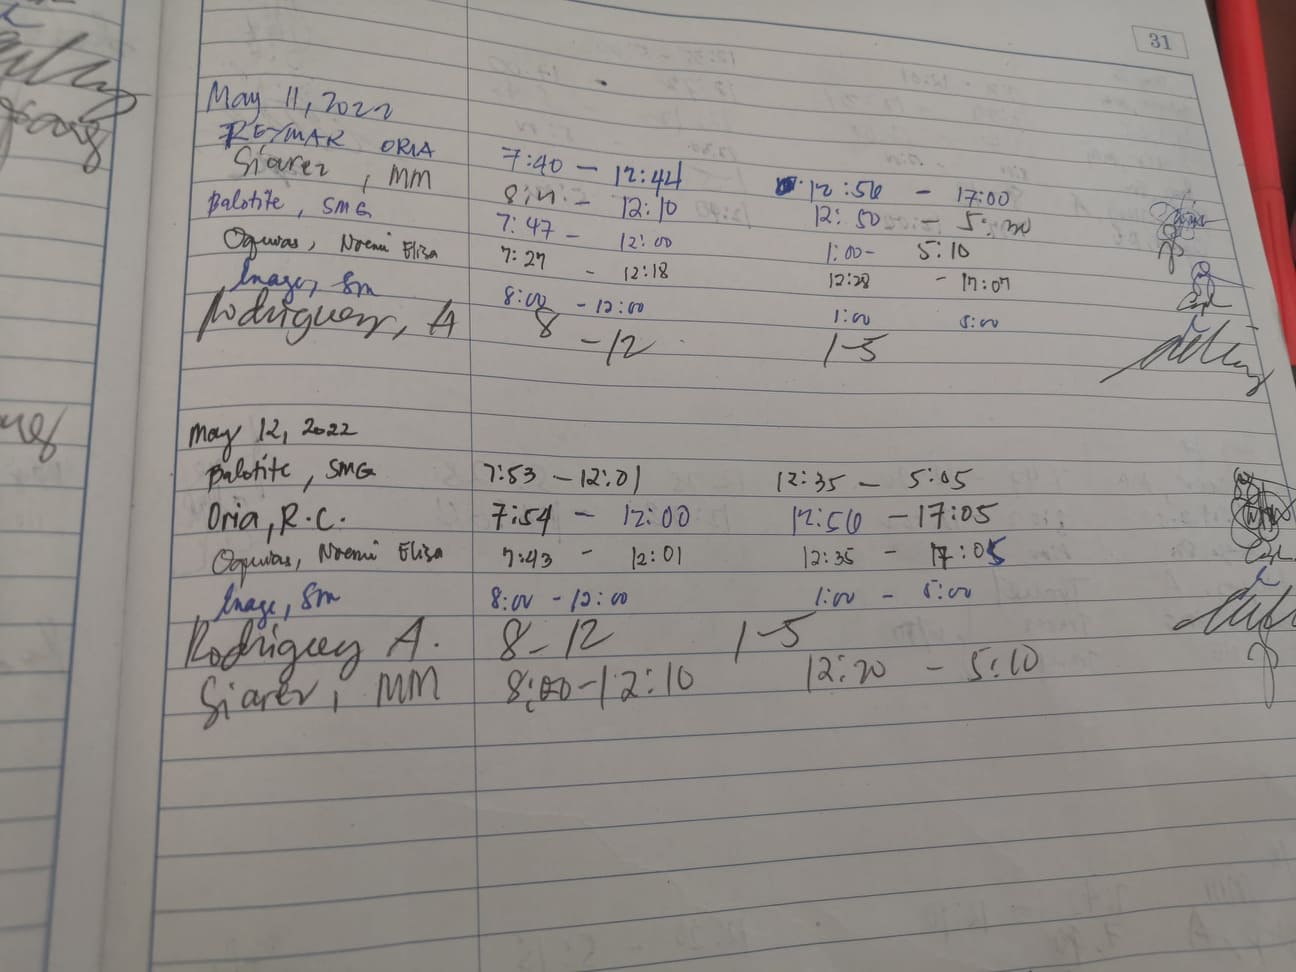 31
May 11, 2022
REYMAR ORIA 7:40 - 12:44 12:56 - 17:00
Siarez, MM - 12:10 12:50 -
Balotite, SMG 7:47 - 12:00 1:00 - 5:10
Noemi Eliza 7:27 - 12:18 12:28 - 17:07
Inage, Sm 8:00 - 12:00 1:00 5:00
Rodriguez, A 8 - 12 1-5
May 12, 2022
Balotite, SMG 7:53 - 12:01 12:35 - 5:05
Oria, R.C. 7:54 - 12:00 12:56 - 17:05
Noemi Eliza 7:43 - 12:01 12:35 - 17:05
Inage, Sm 8:00 - 12:00 1:00 - 5:00
Rodriguez A. 8 - 12 1-5
Siarez, MM 8:00 - 12:10 12:20 - 5:10